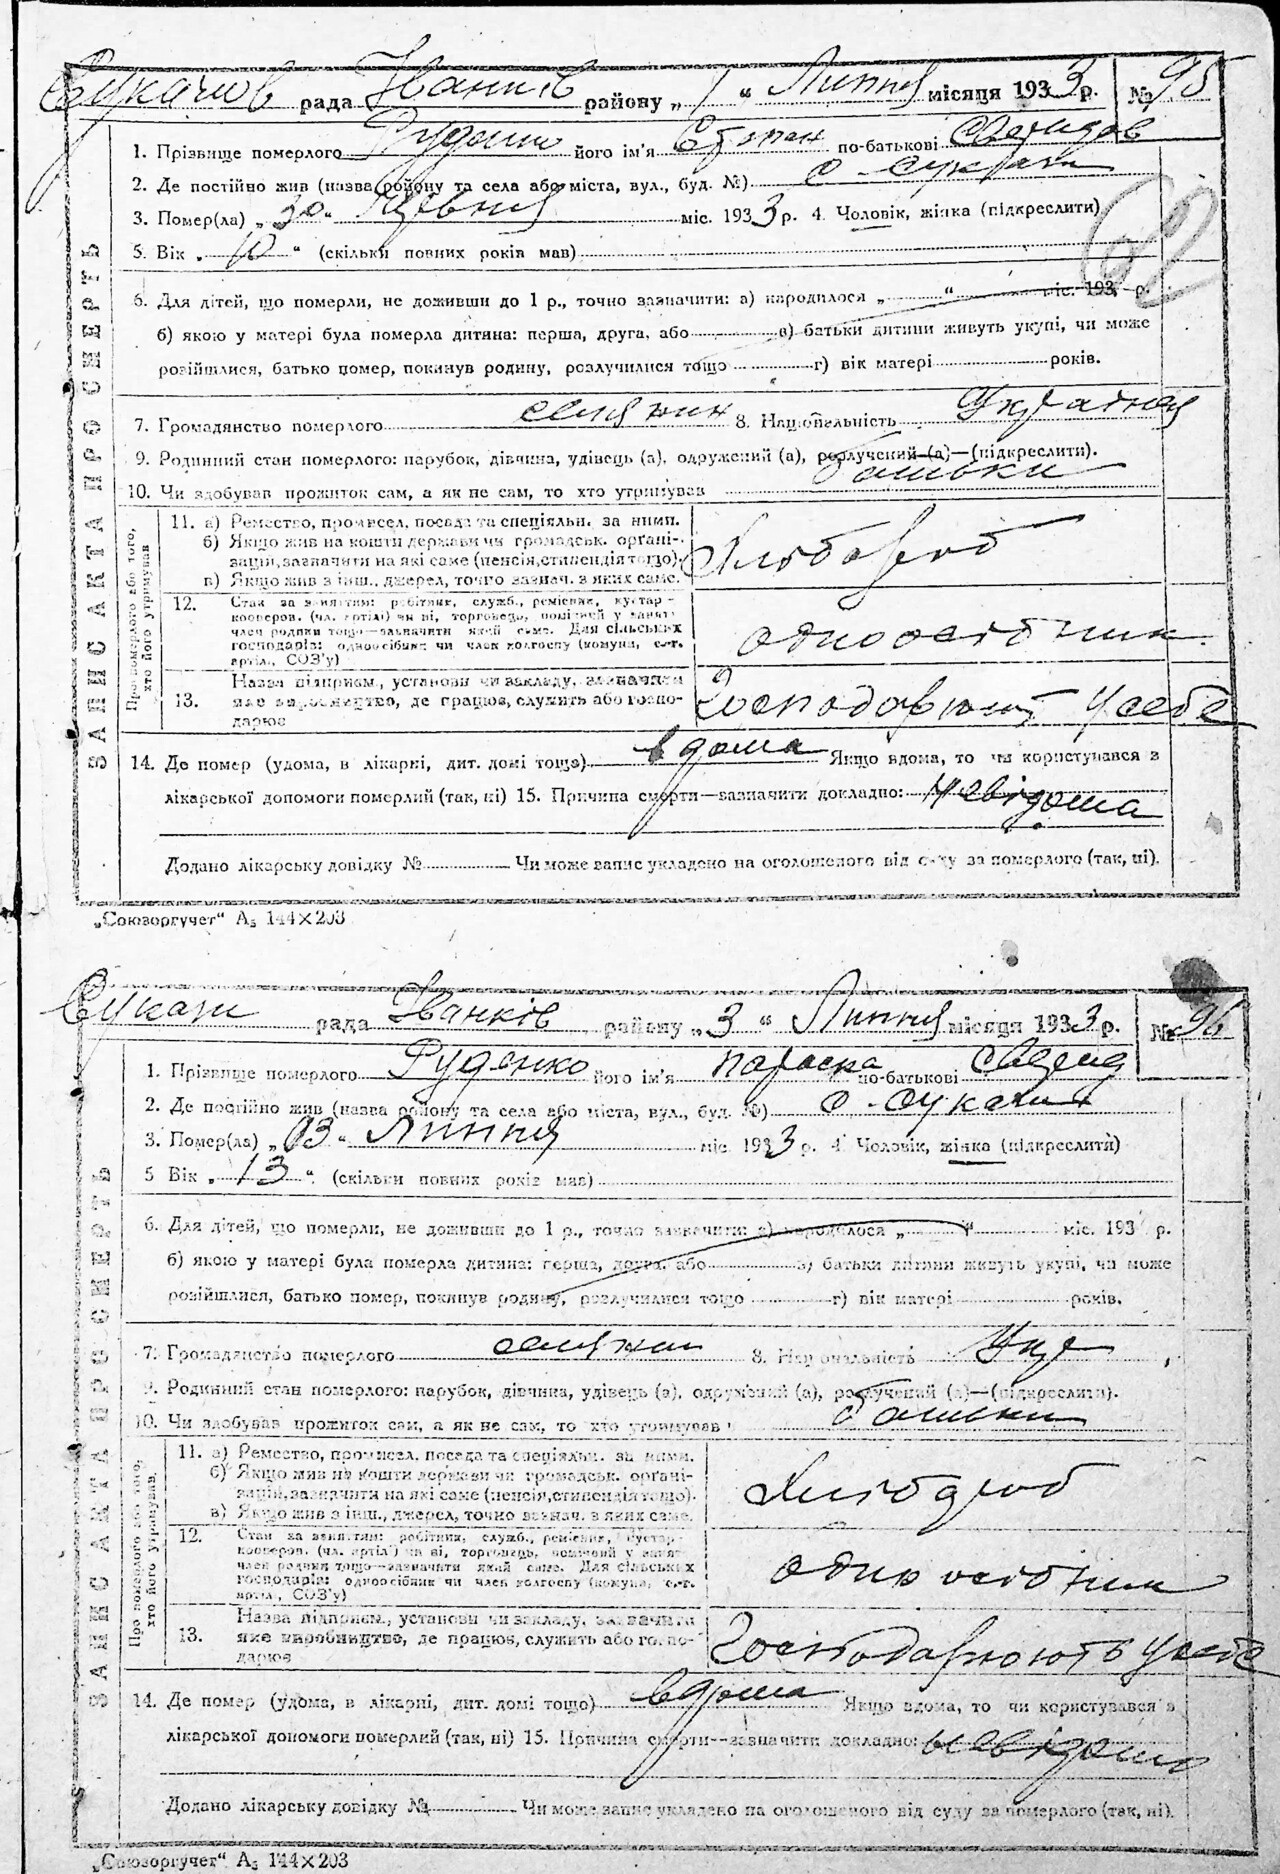 Сукачов рада Іванків району „1“ Липня місяця 1933 р. № 95
ЗАПИС АКТА ПРО СМЕРТЬ
1. Прізвище померлого Руденко його ім'я Степан по-батькові
2. Де постійно жив (назва району та села або міста, вул., буд. №) с Сукачи
3. Помер(ла) „30“ Червня міс. 1933 р. 4. Чоловік, жінка (підкреслити)
5. Вік „10“ (скільки повних років мав)
6. Для дітей, що померли, не доживши до 1 р., точно зазначити: а) народилося „ “ міс. 193 р.
б) якою у матері була померла дитина: перша, друга, або в) батьки дитини живуть укупі, чи може
розійшлися, батько помер, покинув родину, розлучилися тощо г) вік матері років.
7. Громадянство померлого селянин 8. Національність
9. Родинний стан померлого: парубок, дівчина, удівець (а), одружений (а), розлучений (а)—(підкреслити).
10. Чи здобував прожиток сам, а як не сам, то хто утримував батьки
Про померлого або того, хто його утримував
11. а) Ремество, промисел, посада та спеціяльн. за ними.
б) Якщо жив на кошти держави чи громадськ. організацій, зазначити на які саме (пенсія, стипендія тощо).
в) Якщо жив з інш. джерел, точно зазнач. з яких саме.
Хлібороб
12. Стан за заняттям: робітник, служб., ремісник, кустар-
кооперов. (чл. артілі) чи ні, торговець, помічний у занят.
член родини тощо—зазначити який саме. Для сільських
господарів: одноосібник чи член колгоспу (комуни, с.-г.
артіл., СОЗ'у)
одноосібник
13. Назва підприєм., установи чи закладу, зазначити
яке виробництво, де працює, служить або госпо-
дарює
Господарюют у себе
14. Де помер (удома, в лікарні, дит. домі тощо) вдома Якщо вдома, то чи користувався з
лікарської допомоги померлий (так, ні) 15. Причина смерти—зазначити докладно: невідома
Додано лікарську довідку № Чи може запис укладено на оголошеного від суду за померлого (так, ні).
„Союзоргучет“ А₅ 144×203
Сукачи рада Іванків району „3“ Липня місяця 1933 р. № 96
ЗАПИС АКТА ПРО СМЕРТЬ
1. Прізвище померлого Руденко його ім'я Параска по-батькові
2. Де постійно жив (назва району та села або міста, вул., буд. №) с. Сукачи
3. Помер(ла) „03“ Липня міс. 1933 р. 4. Чоловік, жінка (підкреслити)
5 Вік „13“ (скільки повних років мав)
6. Для дітей, що померли, не доживши до 1 р., точно зазначити: а) народилося „ “ міс. 193 р.
б) якою у матері була померла дитина: перша, друга, або в) батьки дитини живуть укупі, чи може
розійшлися, батько помер, покинув родину, розлучилися тощо г) вік матері років.
7. Громадянство померлого селянин 8. Національність Укр
9. Родинний стан померлого: парубок, дівчина, удівець (а), одружений (а), розлучений (а)—(підкреслити).
10. Чи здобував прожиток сам, а як не сам, то хто утримував батьки
Про померлого або того, хто його утримував
11. а) Ремество, промисел, посада та спеціяльн. за ними.
б) Якщо жив на кошти держави чи громадськ. організацій, зазначити на які саме (пенсія, стипендія тощо).
в) Якщо жив з інш., джерел, точно зазнач. з яких саме.
Хлібороб
12. Стан за заняттям: робітник, служб., ремісник, кустар-
кооперов. (чл. артілі) чи ні, торговець, помічний у занят.
член родини тощо—зазначити який саме. Для сільських
господарів: одноосібник чи член колгоспу (комуни, с.-г.
артіл., СОЗ'у)
одноосібник
13. Назва підприєм., установи чи закладу, зазначити
яке виробництво, де працює, служить або госпо-
дарює
Господарюють у себе
14. Де помер (удома, в лікарні, дит. домі тощо) вдома Якщо вдома, то чи користувався з
лікарської допомоги померлий (так, ні) 15. Причина смерти—зазначити докладно: невідомо
Додано лікарську довідку № Чи може запис укладено на оголошеного від суду за померлого (так, ні).
„Союзоргучет“ А₅ 144×203